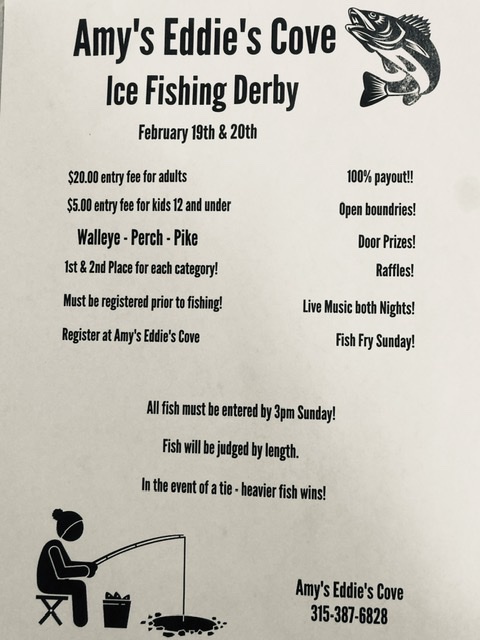 Amy's Eddie's Cove
Ice Fishing Derby
February 19th & 20th
$20.00 entry fee for adults
$5.00 entry fee for kids 12 and under
Walleye - Perch - Pike
1st & 2nd Place for each category!
Must be registered prior to fishing!
Register at Amy's Eddie's Cove
100% payout!!
Open boundries!
Door Prizes!
Raffles!
Live Music both Nights!
Fish Fry Sunday!
All fish must be entered by 3pm Sunday!
Fish will be judged by length.
In the event of a tie - heavier fish wins!
Amy's Eddie's Cove
315-387-6828